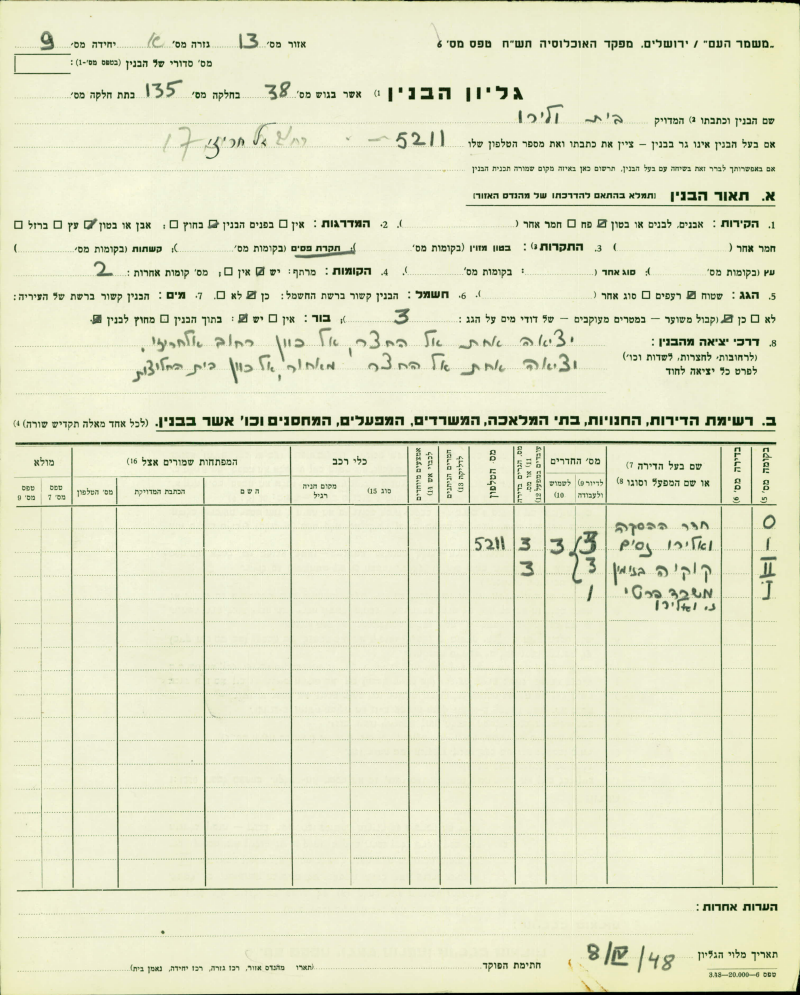 „משמר העם" / ירושלים. מפקד האוכלוסיה תש"ח טפס מס' 6 אזור מס' 13 גזרה מס' א יחידה מס' 9
מס' סדורי של הבנין (בטפס מס' 1-):
גליון הבנין (1 אשר בגוש מס' 38 בחלקה מס' 135 בתת חלקה מס'
שם הבנין וכתבתו (2 המדויק בית ולירו
אם בעל הבנין אינו גר בבנין – ציין את כתבתו ואת מספר הטלפון שלו 5211 – רח' אלחריזי 17
אם באפשרותך לברר זאת בשיחה עם בעל הבנין, תרשום כאן באיזה מקום שמורה תכנית הבנין
א. תאור הבנין (תמלא בהתאם להדרכתו של מהנדס האזור)
1. הקירות: אבנים, לבנים או בטון ☑ פח ☐ חמר אחר ( ). 2. המדרגות: אין ☐ בפנים הבנין ☑ בחוץ ☐; אבן או בטון ☑ עץ ☐ ברזל ☐
חמר אחר ( ) 3. התקרות (3: בטון מזוין (בקומות מס' ); תקרת פסים (בקומות מס' ); קשתות (בקומות מס' )
עץ (בקומות מס' ); סוג אחד ( : בקומות מס' ). 4. הקומות: מרתף: יש ☑ אין ☐; מס' קומות אחרות: 2
5. הגג: שטוח ☑ רעפים ☐ סוג אחר ( ). 6. חשמל: הבנין קשור ברשת החשמל: כן ☑ לא ☐. 7. מים: הבנין קשור ברשת של העיריה:
לא ☐ כן ☑ (קבול משוער – במטרים מעוקבים – של דודי מים על הגג: 3 ); בור: אין ☐ יש ☑: בתוך הבנין ☐ מחוץ לבנין ☑.
8. דרכי יציאה מהבנין: יציאה אחת אל החצר, אל כוון רחוב אלחריזי,
(לרחובות, לחצרות, לשדות וכו') ויציאה אחת אל החצר מאחור, אל כוון בית החלוצות
לפרט כל יציאה לחוד
ב. רשימת הדירות, החנויות, בתי המלאכה, המשרדים, המפעלים, המחסנים וכו' אשר בבנין. (לכל אחד מאלה תקדיש שורה) (4
בקומה מס' (5 בדירה מס' (6 שם בעל הדירה (7 או שם המפעל וסוגו (8 מס' החדרים לדיור (9 ולעבודה לשמוש (10 מס. הגרים בדירה (11 או מס. עובדים במפעל (12 מס הטלפון חמרים הניתנים לדליקה (13 אמצעים מיוחדים לכבוי אש (14 כלי רכב סוג (15 מקום חניה רגיל המפתחות שמורים אצל (16 השם הכתבת המדויקת מס' הטלפון מולא טפס מס' 7 טפס מס' 9
0 חדר ההסקה
I ואלירו נסים 3 3 3 5211
II קוקיה בנימין 3 3
I משרד פרטי 1
נ. ואלירו
הערות אחרות:
תאריך מלוי הגליון 8/IV/48 חתימת הפוקד (תארו מהנדס אזור, רכז גזרה, רכז יחידה, נאמן בית)
טפס 6—20.000—3.48